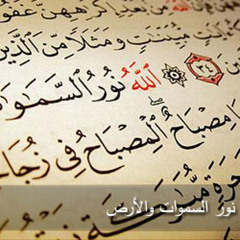 إِكْرَٰهِهِنَّ غَفُورٌ
ءَايَٰتٍ مُّبَيِّنَٰتٍ وَمَثَلًا مِّنَ الَّذِينَ
٣٤ اللَّهُ نُورُ السَّمَٰوَٰ
مِصْبَاحٌ الْمِصْبَاحُ فِي زُجَا
جَرَةٍ مُّبَٰرَكَةٍ
نور السموات والأرض